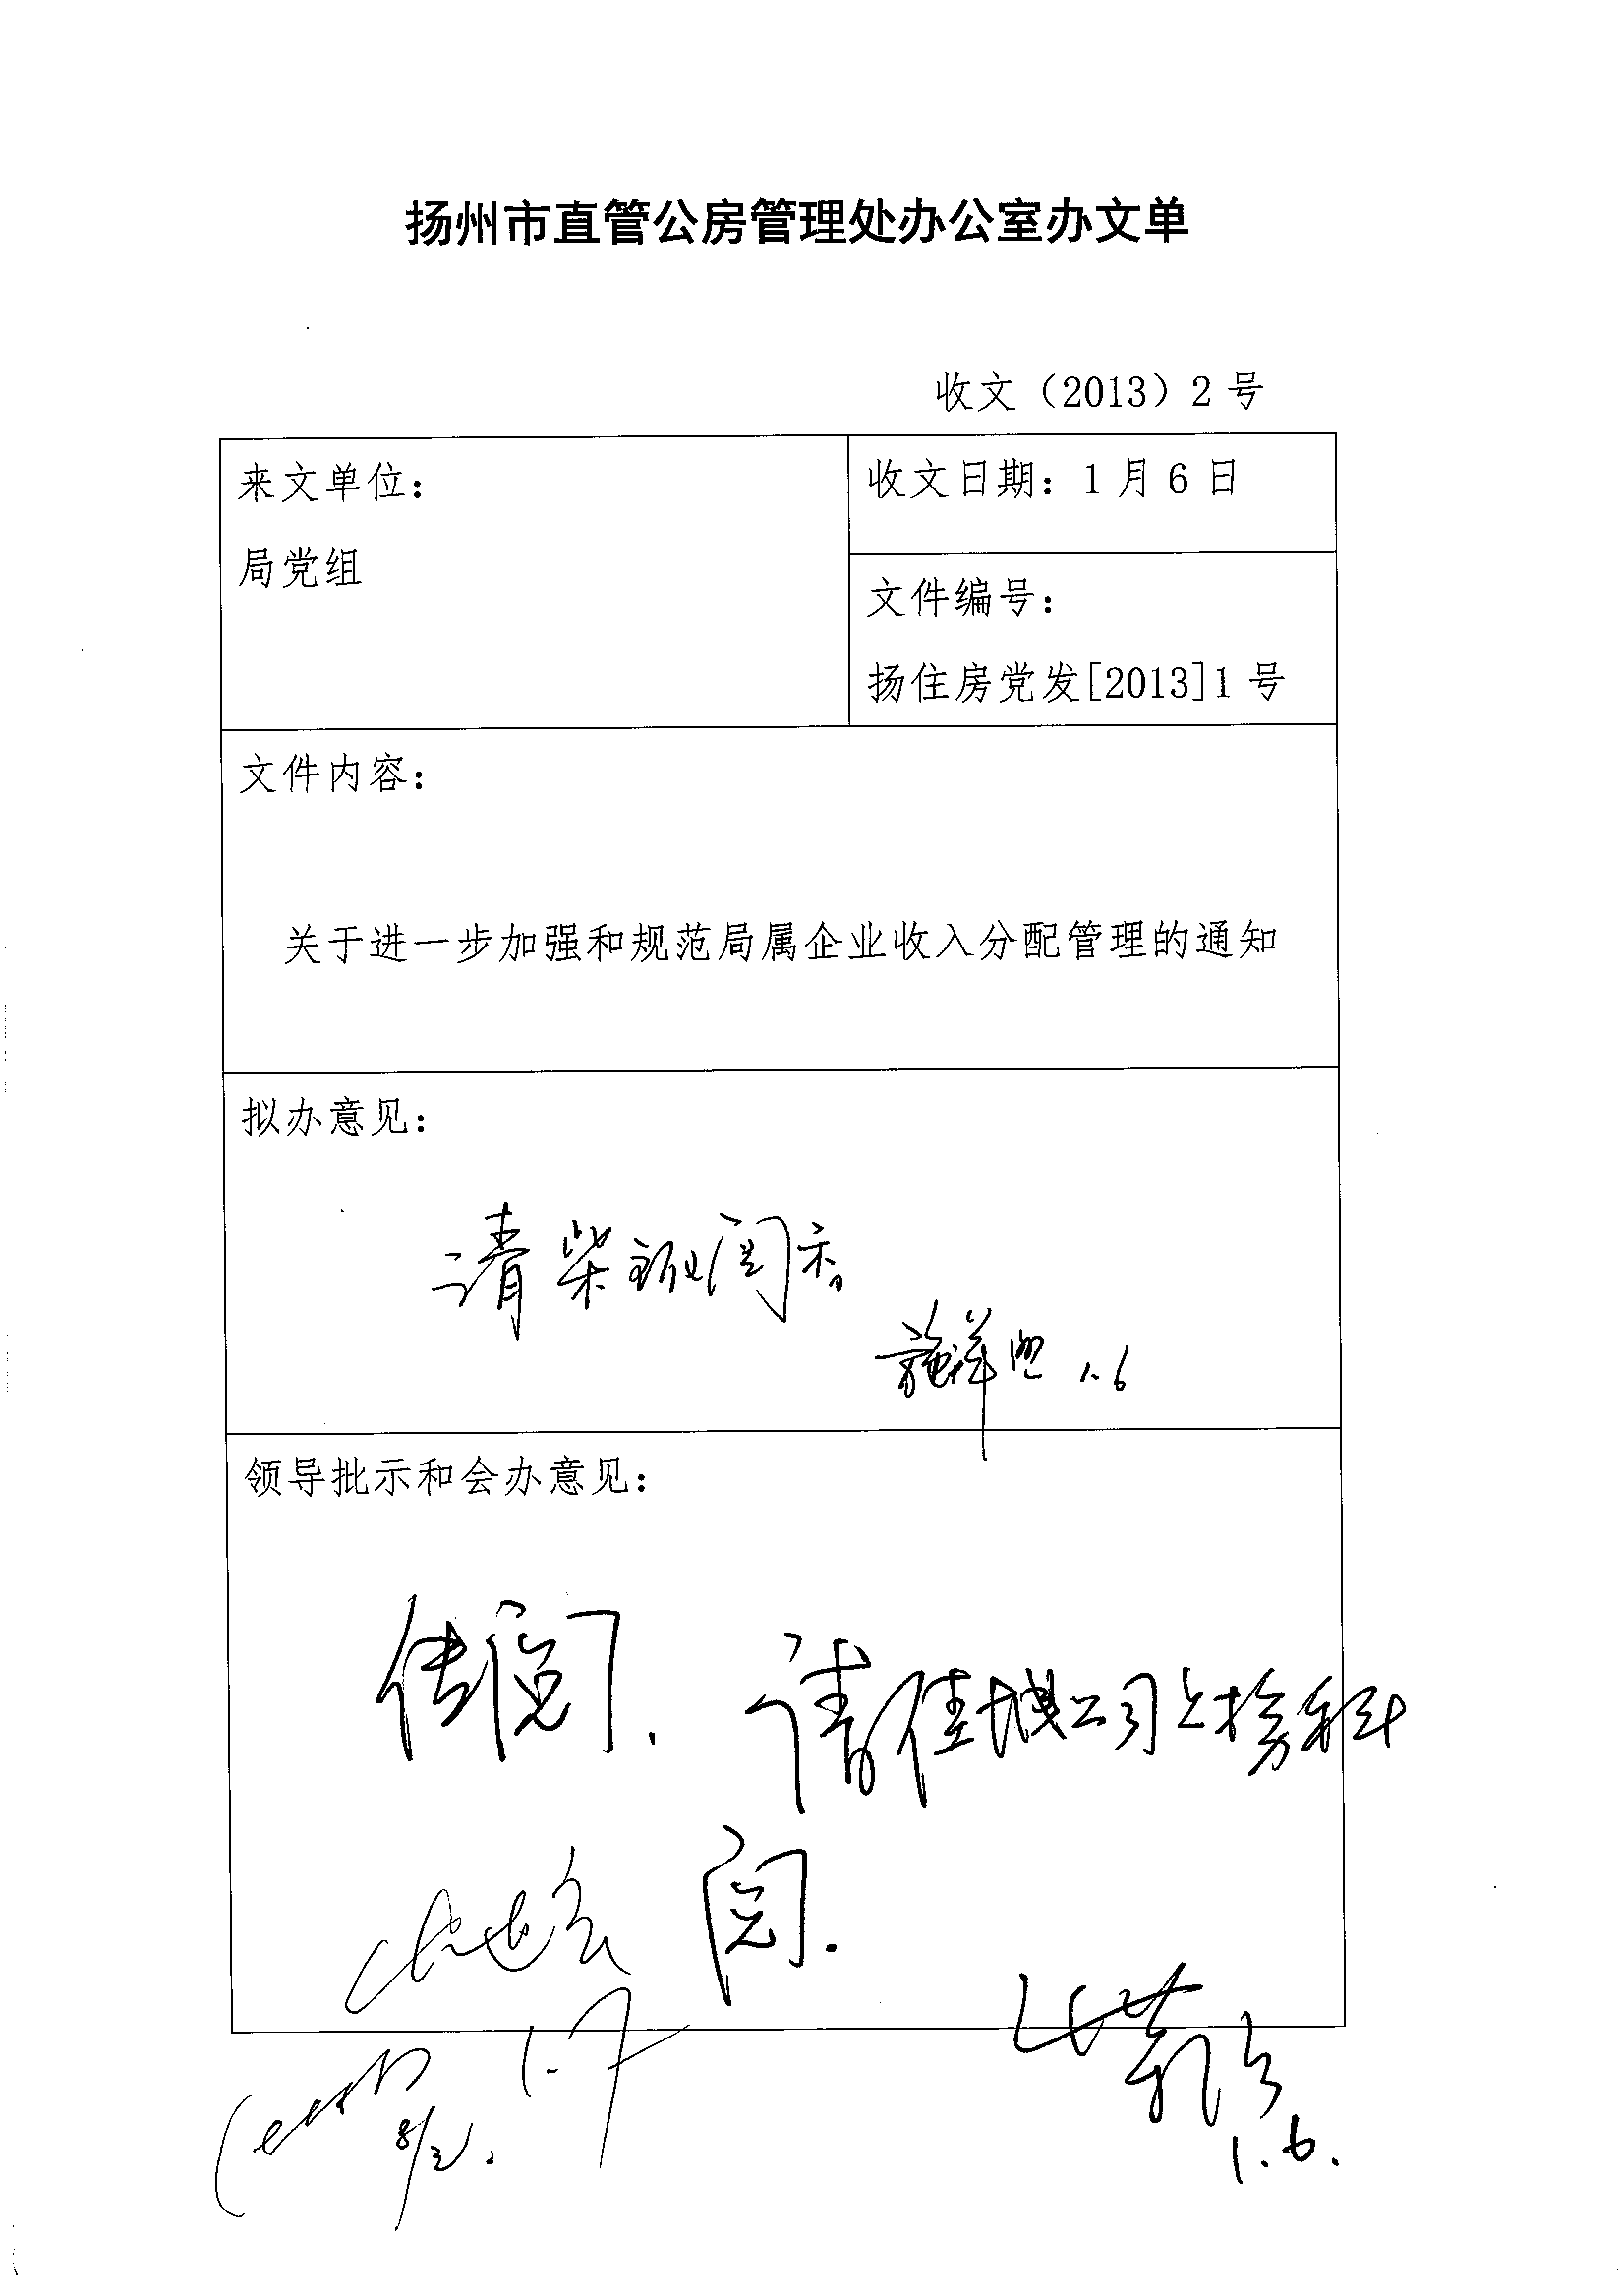 扬州市直管公房管理处办公室办文单
收文（2013）2 号
来文单位：
局党组
收文日期：1 月 6 日
文件编号：
扬住房党发[2013]1 号
文件内容：
关于进一步加强和规范局属企业收入分配管理的通知
拟办意见：
请柴主任阅示
1.6
领导批示和会办意见：
传阅. 请佳城公司上榜科
阅.
1.7
1.6.